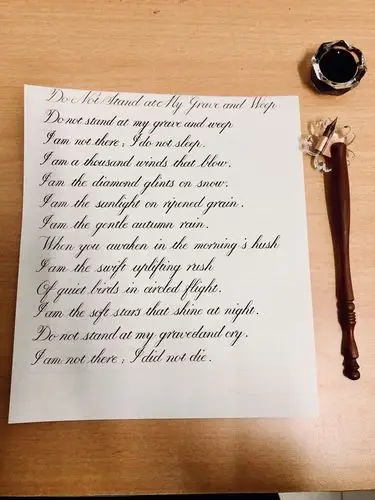 Do Not Stand at My Grave and Weep
Do not stand at my grave and weep
I am not there; I do not sleep.
I am a thousand winds that blow.
I am the diamond glints on snow.
I am the sunlight on ripened grain.
I am the gentle autumn rain.
When you awaken in the morning's hush
I am the swift uplifting rush
Of quiet birds in circled flight.
I am the soft stars that shine at night.
Do not stand at my gravedand cry.
I am not there; I did not die.